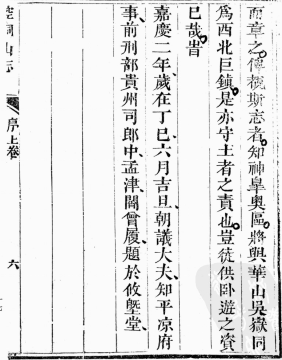 而章之。俾覩斯志者。知神皋奧區。將與華山吳嶽同
爲西北巨鎮。是亦守土者之責也。豈徒供臥遊之資
已哉。旹
嘉慶二年、歲在丁巳六月吉旦、朝議大夫、知平凉府
事、前刑部貴州司郎中、孟津閻曾履、題於攸塈堂、
空同山志
序上卷
六